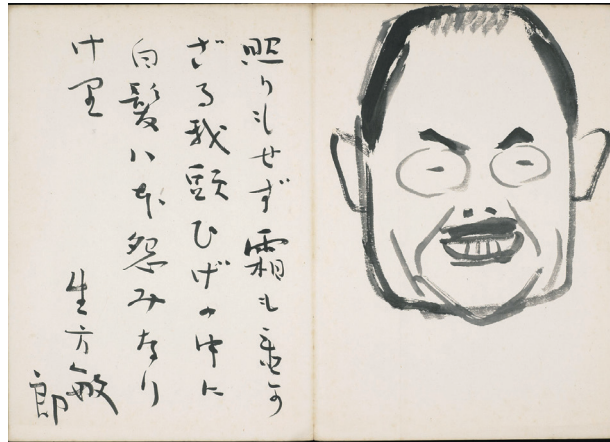 照りもせず霜も置か
ざる我頭ひげの中に
白髪ハ怨みなり
け里
生方敏
郎